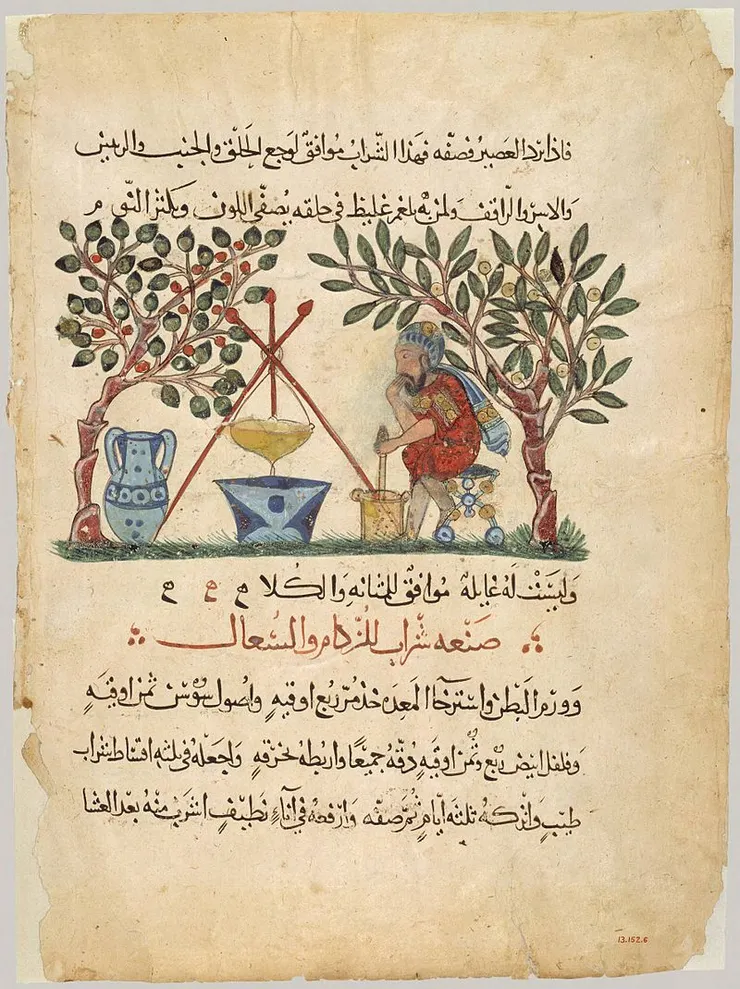 فاذا برد العصير فصفه فهذا الشراب موافق لوجع الحلق والجنب والريتين
والاسر والراقف ولمن به بلغم غليظ في حلقه يصفي اللون ويكثر النوم
وليست له غايله موافق للمثانه والكلا
صنعه شراب للزكام والسعال
وورم البطن واسترخا المعده خذ مر ربع اوقيه واصول سوسن ثمن اوقيه
وفلفل ابيض ربع وثمن اوقيه دقه جميعا واربطه بخرقه واجعله في ثلثه اقساط شراب
طيب واتركه ثلثه ايام ثم صفه وارفعه في اناء نظيف اشرب منه بعد العشا
13.152.6